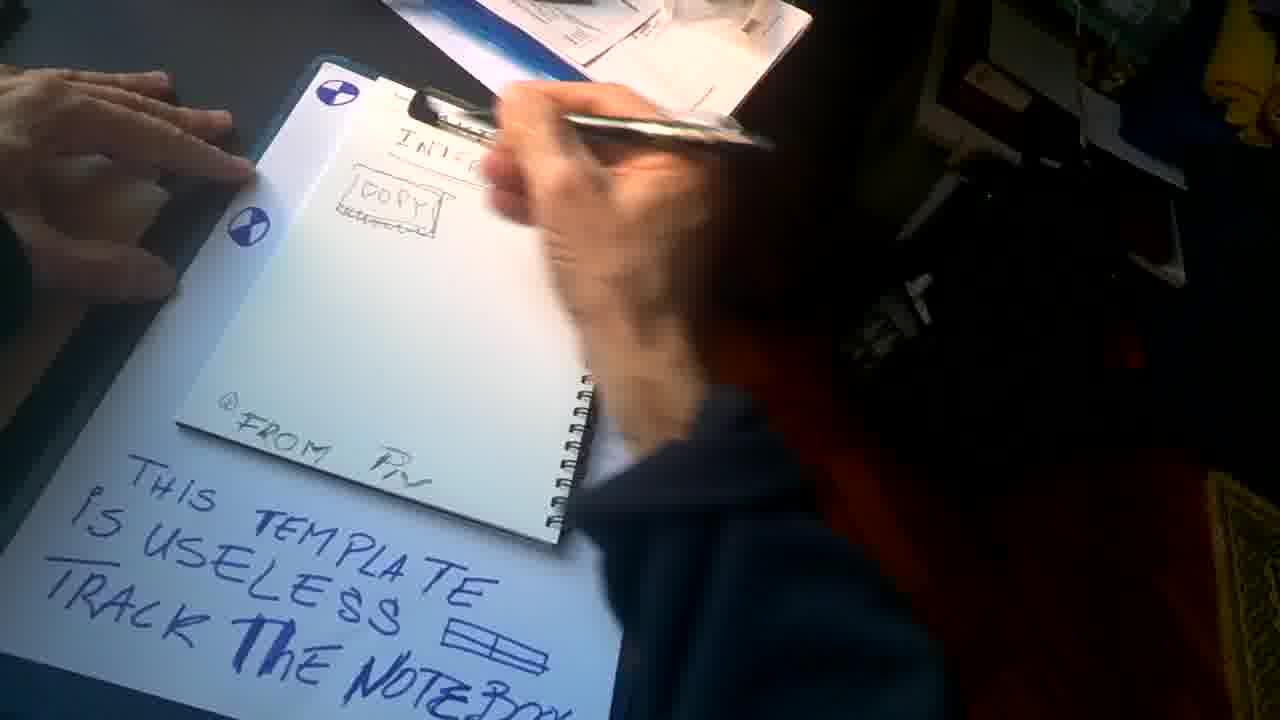 COPY
FROM
THIS TEMPLATE
IS USELESS
TRACK THE NOTEBOO